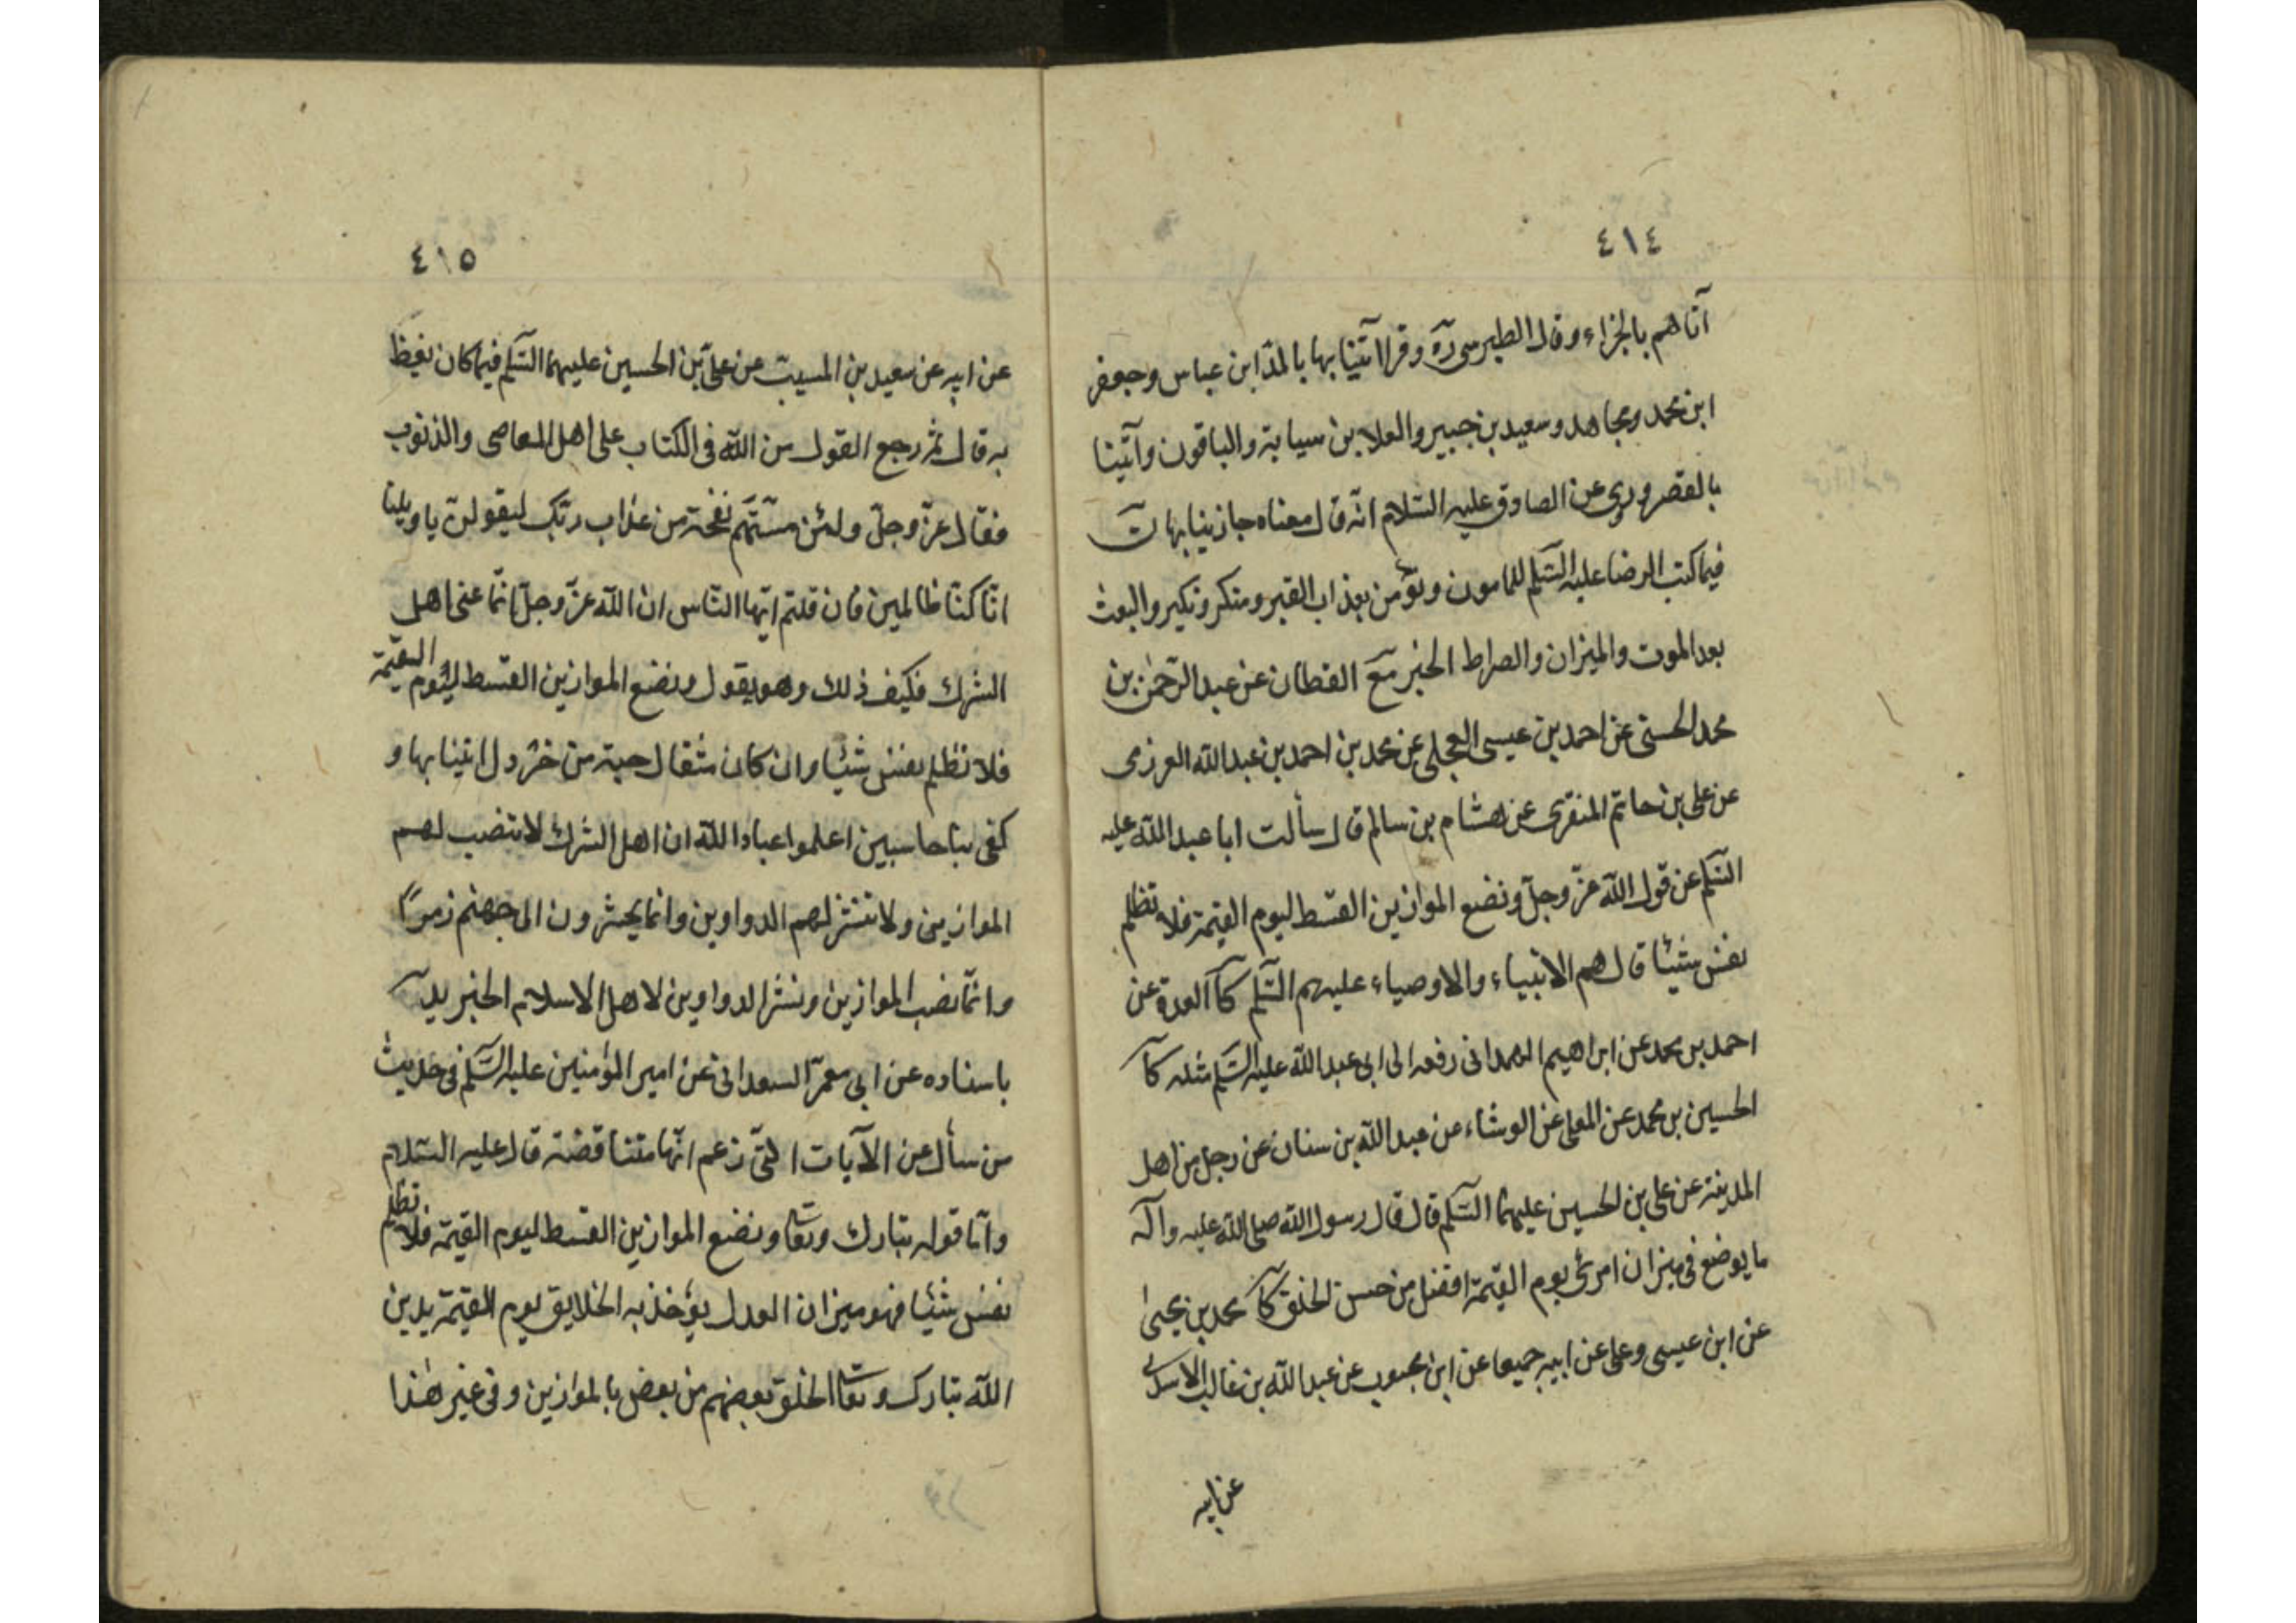 ٤١٤
آتاهم بالجزاء وقال الطبرسي ره وقرا آتينا بها بالمد ابن عباس وجعفر
ابن محمد ومجاهد وسعيد بن جبير والعلا بن سيابة والباقون وآتينا
بالقصر وروى عن الصادق عليه السّلام انّه قال معناه جازينا بها ن
فيما كتب الرضا عليه السّلم للمامون ونؤمن بعذاب القبر ومنكر ونكير والبعث
بعد الموت والميزان والصراط الخبر مع القطان عن عبد الرّحمٰن بن
محمد الحسنى عن احمد بن عيسى العجلى عن محمد بن احمد بن عبد الله العرزمى
عن على بن حاتم المنقرى عن هشام بن سالم قال سألت ابا عبد اللّه عليه
السّلم عن قول اللّه عزّ وجلّ ونضع الموازين القسط ليوم القيمة فلا تظلم
نفس شيئا قال هم الانبياء والاوصياء عليهم السّلم كا العدة عن
احمد بن محمد عن ابراهيم الهمدانى رفعه الى ابى عبد اللّه عليه السّلم مثله كا
الحسين بن محمد عن المعلى عن الوشاء عن عبد اللّه بن سنان عن رجل من اهل
المدينة عن على بن الحسين عليهما السّلم قال قال رسول اللّه صلى اللّه عليه وآله
ما يوضع فى ميزان امرئ يوم القيمة افضل من حسن الخلق كا محمد بن يحيىٰ
عن ابن عيسى وعلى عن ابيه جميعا عن ابن محبوب عن عبد اللّه بن غالب الاسدى
عن ابيه
٤١٥
عن ابيه عن سعيد بن المسيب عن علىّ بن الحسين عليهما السّلم فيما كان يعظ
به قال ثم رجع القول من اللّه فى الكتاب على اهل المعاصى والذنوب
فقال عزّ وجلّ ولئن مسّتهم نفحة من عذاب ربّك ليقولنّ يا ويلنا
انّا كنّا ظالمين فان قلتم ايّها النّاس ان اللّه عزّ وجلّ انّما عنى اهل
الشرك فكيف ذلك وهو يقول ونضع الموازين القسط ليوم القيمة
فلا تظلم نفس شيئا وان كان مثقال حبة من خردل اتينا بها و
كفى بنا حاسبين اعلموا عباد اللّه ان اهل الشرك لا تنصب لهم
الموازين ولا تنشر لهم الدواوين وانما يحشرون الى جهنم زمرًا
وانّما نصب الموازين ونشر الدواوين لاهل الاسلام الخبر يد
باسناده عن ابى معمّر السعدانى عن امير المؤمنين عليه السّلم فى حديث
من سأل عن الآيات التى زعم انّها متناقضة قال عليه السّلام
وامّا قوله تبارك وتعا ونضع الموازين القسط ليوم القيمة فلا تظلم
نفس شيئا فهو ميزان العدل يؤخذ به الخلايق يوم القيمة يدين
اللّه تبارك وتعا الخلق بعضهم من بعض بالموازين وفى غير هٰذا